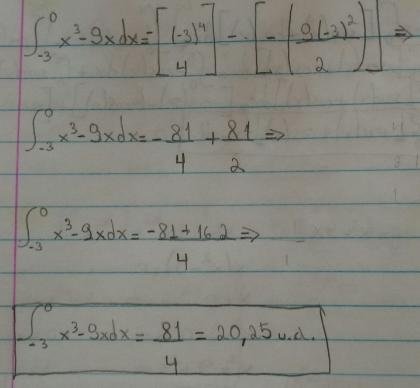 ∫₋₃⁰ x³-9xdx=-[(-3)⁴/4] - [-(9(-3)²/2)] ⇒
∫₋₃⁰ x³-9xdx=-81/4+81/2 ⇒
∫₋₃⁰ x³-9xdx=(-81+162)/4 ⇒
∫₋₃⁰ x³-9xdx=81/4=20,25 u.a.